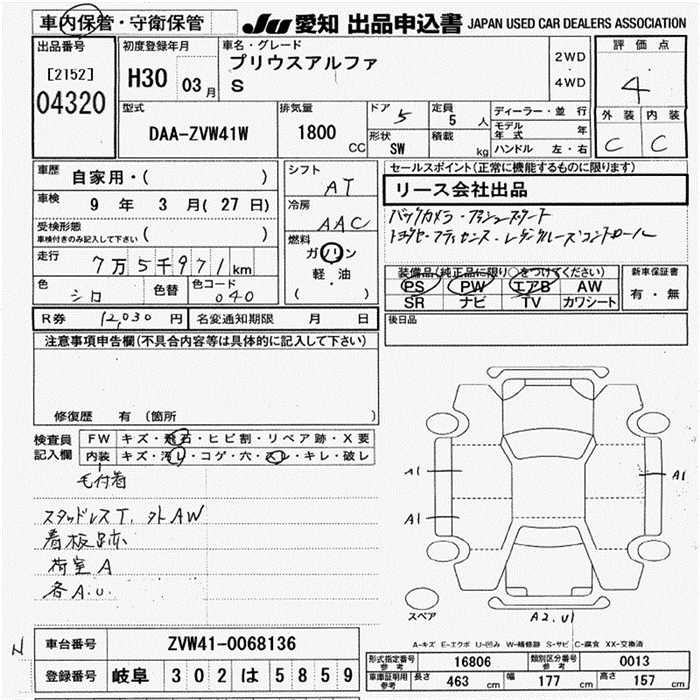 車内保管・守衛保管 JU 愛知 出品申込書 JAPAN USED CAR DEALERS ASSOCIATION
出品番号 初度登録年月 車名・グレード 評価点
[2152] H30 03月 プリウスアルファ 2WD 4
04320 S 4WD
型式 排気量 ドア 5 定員 ディーラー・並行 外装 内装
DAA-ZVW41W 1800 CC 5人 モデル年式 年 C C
形状 SW 積載 kg ハンドル 左・右
車歴 自家用・( ) シフト AT セールスポイント(正常に機能するものに限ります)
リース会社出品
車検 9年 3月(27日) 冷房 AAC
受検形態 車検付きのみ記入して下さい ( ) バックカメラ・プッシュスタート
走行 7万5千971km 燃料 ガソリン 軽・油 ( )
装備品(純正品に限り○をつけてください) 新車保証書
色 シロ 色替 色コード 040 PS PW エアB AW 有・無
SR ナビ TV カワシート
R券 12,030円 名変通知期限 月 日 後日品
注意事項申告欄(不具合内容等は具体的に記入して下さい)
修復歴 有 (箇所 )
検査員記入欄 FW キズ・飛石・ヒビ割・リペア跡・X要
内装 キズ・汚レ・コゲ・穴・スレ・キレ・破レ
毛付着
スタッドレスT. 外AW
看板跡
荷室A
各A.U.
A1
A1
A1
スペア
A2.U1
A-キズ E-エクボ U-凹み W-補修跡 S-サビ C-腐食 XX-交換済
N 車台番号 ZVW41-0068136
登録番号 岐阜 302 は 5859
形式指定番号 参考 16806 類別区分番号 参考 0013
車庫証明用 参考 長さ 463 cm 幅 177 cm 高さ 157 cm